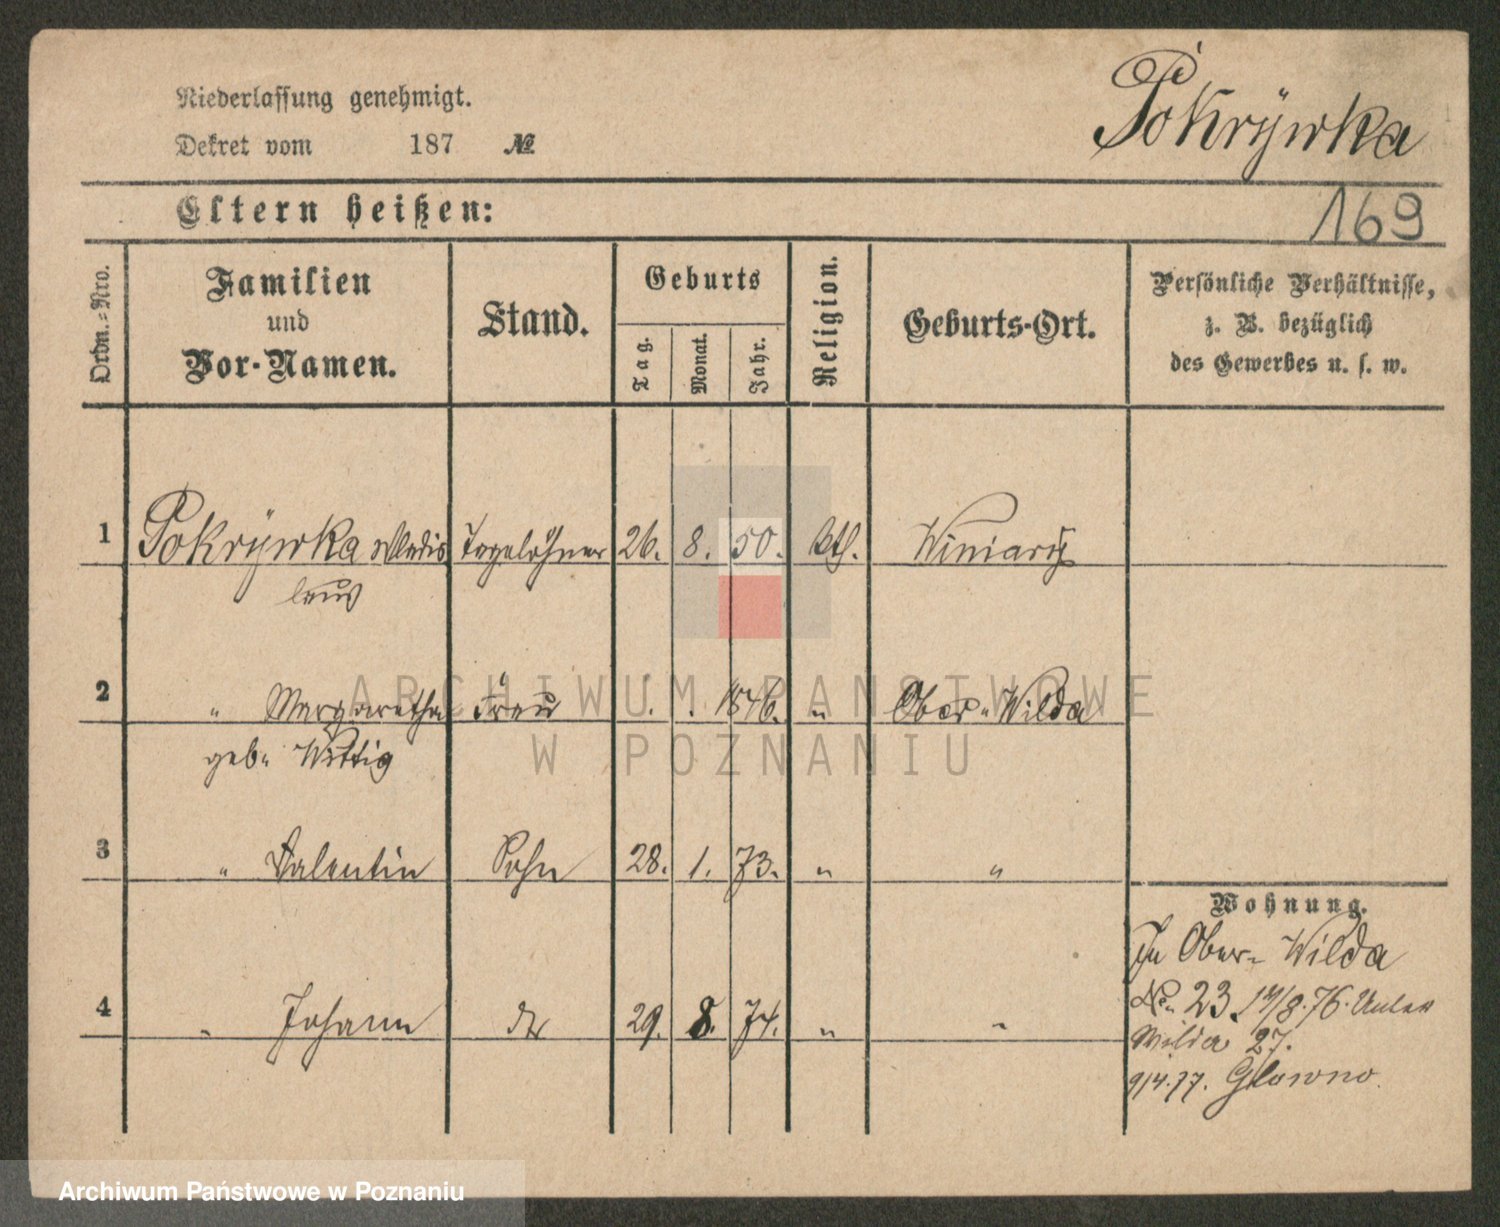 Niederlassung genehmigt.
Dekret vom 187 №
Pokrÿwka
Eltern heißen:
169
Ordn.-Nro.
Familien
und
Vor-Namen.
Stand.
Geburts
Tag.
Monat.
Jahr.
Religion.
Geburts-Ort.
Persönliche Verhältnisse,
z. B. bezüglich
des Gewerbes u. s. w.
1 Pokrÿwka Wladis Tagelöhner 26. 8. 50. kth. Winiarÿ
laus
2 " Margaretha Frau . . 1846. " Ober-Wilda
geb. Wittig
3 " Valentin Sohn 28. 1. 73. " "
4 " Johann do 29. 8. 74. " "
Wohnung.
In Ober-Wilda
No. 23. 14/8.76. Unter
Wilda 27.
9/4.77. Glowno.
ARCHIWUM PAŃSTWOWE
W POZNANIU
Archiwum Państwowe w Poznaniu